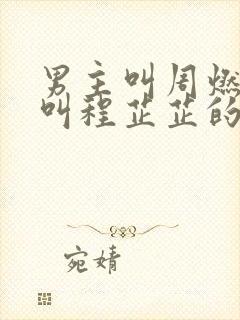 男主叫周燃
叫程芷芷的
宛婧